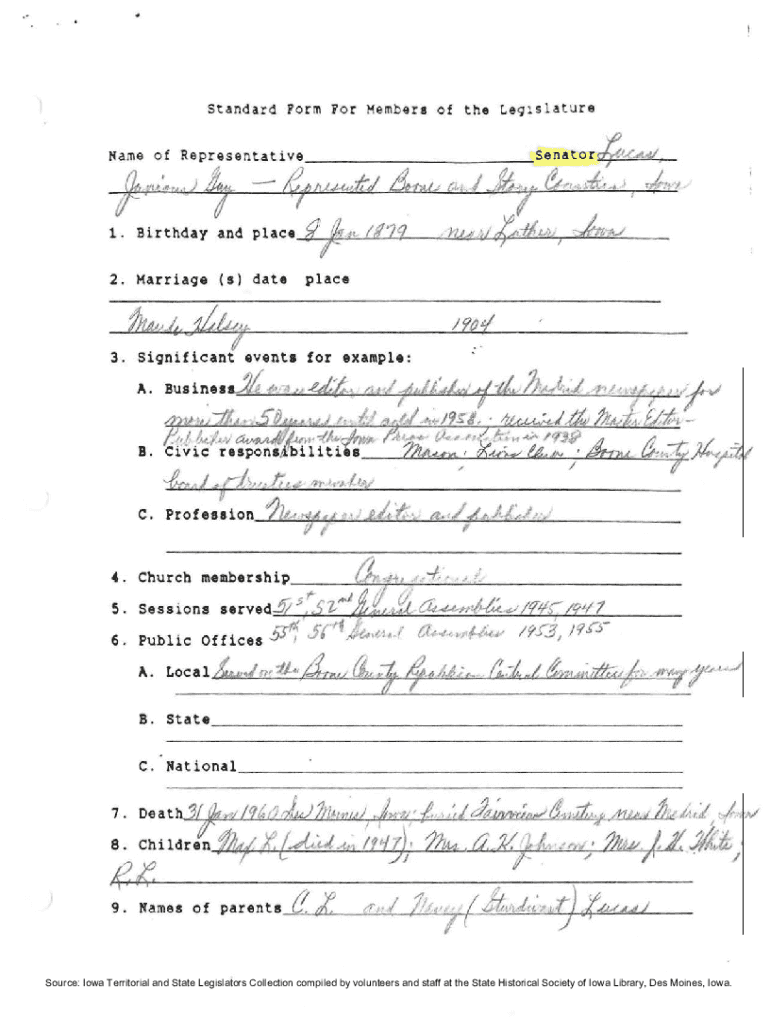 Standard Form For Members of the Legislature
Name of Representative Senator Lucas,
Guy — Represented Boone and Story Counties, Iowa
1. Birthday and place 8 Jan 1879 near Luther, Iowa
2. Marriage (s) date place
Maude Halsey 1904
3. Significant events for example:
A. Business He was editor and publisher of the Madrid newspaper for
more than 50 years until sold in 1958; received the Master Editor-
Publisher award from the Iowa Press Association in 1938
B. Civic responsibilities Mason; Lions Club; Boone County Hospital
board of trustees member
C. Profession Newspaper editor and publisher
4. Church membership Congregational
5. Sessions served 51st, 52nd General Assemblies 1945, 1947
55th, 56th General Assemblies 1953, 1955
6. Public Offices
A. Local Served on the Boone County Republican Central Committee for many years
B. State
C. National
7. Death 31 Jan 1960 Des Moines, Iowa; buried Fairview Cemetery near Madrid, Iowa
8. Children Max L. (died in 1947); Mrs. A. K. Johnson; Mrs. J. H. White;
R. L.
9. Names of parents C. L. and Nancy (Sturdivant) Lucas
Source: Iowa Territorial and State Legislators Collection compiled by volunteers and staff at the State Historical Society of Iowa Library, Des Moines, Iowa.